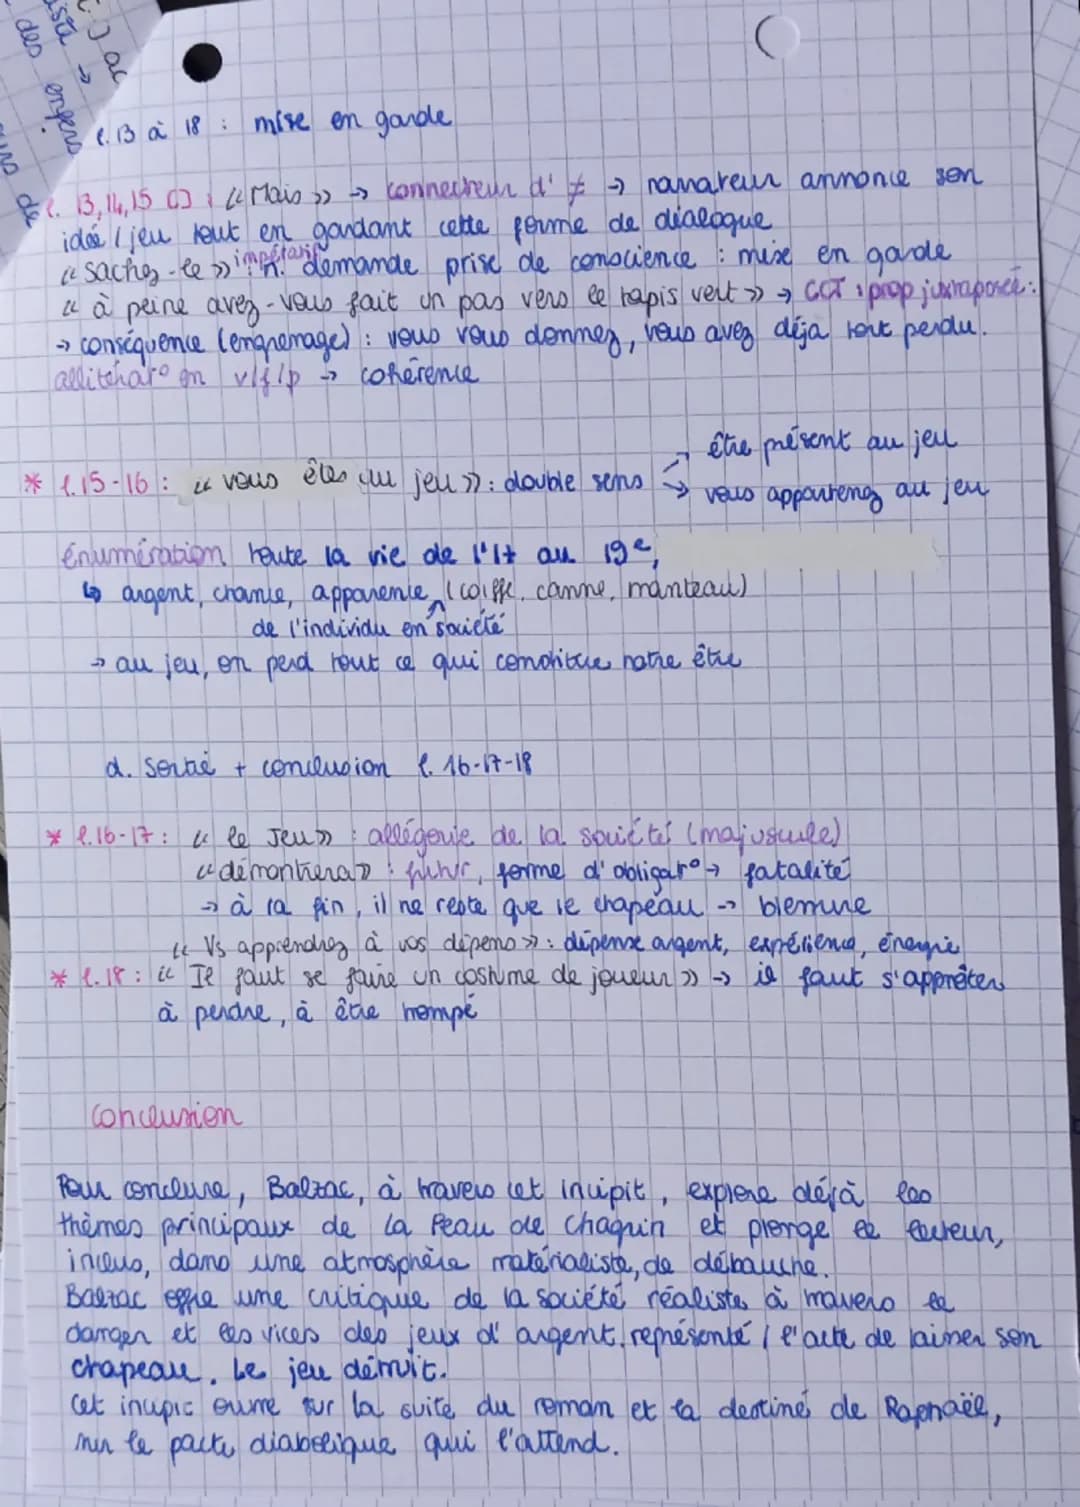 des
ista →
ac
des engens
de
l. 13 à 18 : mise en garde
l. 13, 14, 15 [] : « Mais » → connecteur d' ≠ → narrateur annonce son
idée / jeu tout en gardant cette forme de dialogue
« sachez-le » : impératif n. demande prise de conscience : mise en garde
« à peine avez-vous fait un pas vers le tapis vert » → CCT : prop juxtaposée :
→ conséquence (engrenage) : vous vous donnez, vous avez déja tout perdu.
allitérat° en v/f/p → cohérence
* l. 15-16 : « vous êtes au jeu » : double sens → être présent au jeu
→ vous appartenez au jeu
énumération toute la vie de l'H au 19e,
↳ argent, chance, apparence (coiffe, canne, manteau)
de l'individu en société
→ au jeu, on perd tout ce qui constitue notre être
d. Sortie + conclusion l. 16-17-18
* l. 16-17 : « le Jeu » : allégorie de la société (majuscule)
« démontrera » : futur, forme d'obligat° → fatalité
→ à la fin, il ne reste que le chapeau →
« Vs apprendrez à vos dépens » : dépense argent, expérience, énergie
* l. 18 : « Il faut se faire un costume de joueur » → il faut s'apprêter
à perdre, à être trompé
Conclusion
Pour conclure, Balzac, à travers cet incipit, explore déjà les
thèmes principaux de la Peau de Chagrin et plonge le lecteur,
inclus, dans une atmosphère matérialiste, de débauche.
Balzac offre une critique de la société réaliste à travers le
danger et les vices des jeux d'argent, représenté / l'acte de laisser son
chapeau. Le jeu détruit.
Cet incipit ouvre sur la suite du roman et la destiné de Raphaël,
sur le pacte diabolique qui l'attend.